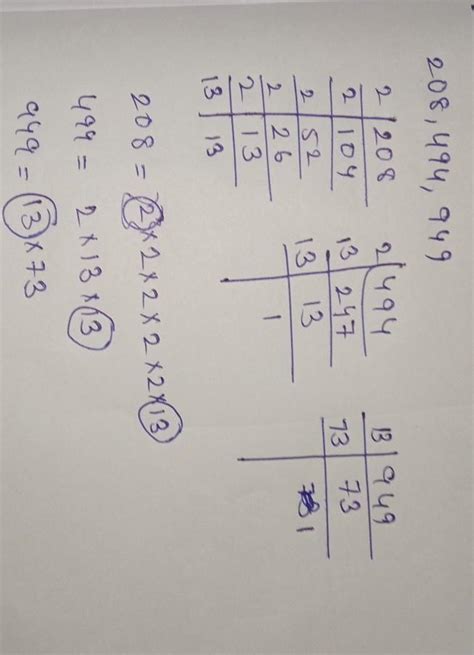 208, 494, 949
2 208 2 494 13 949
2 104 13 247 73 73
2 52 13 13 1
2 26 1
2 13
13 13
208 = 2×2×2×2×2×13
499 = 2×13×13
949 = 13×73